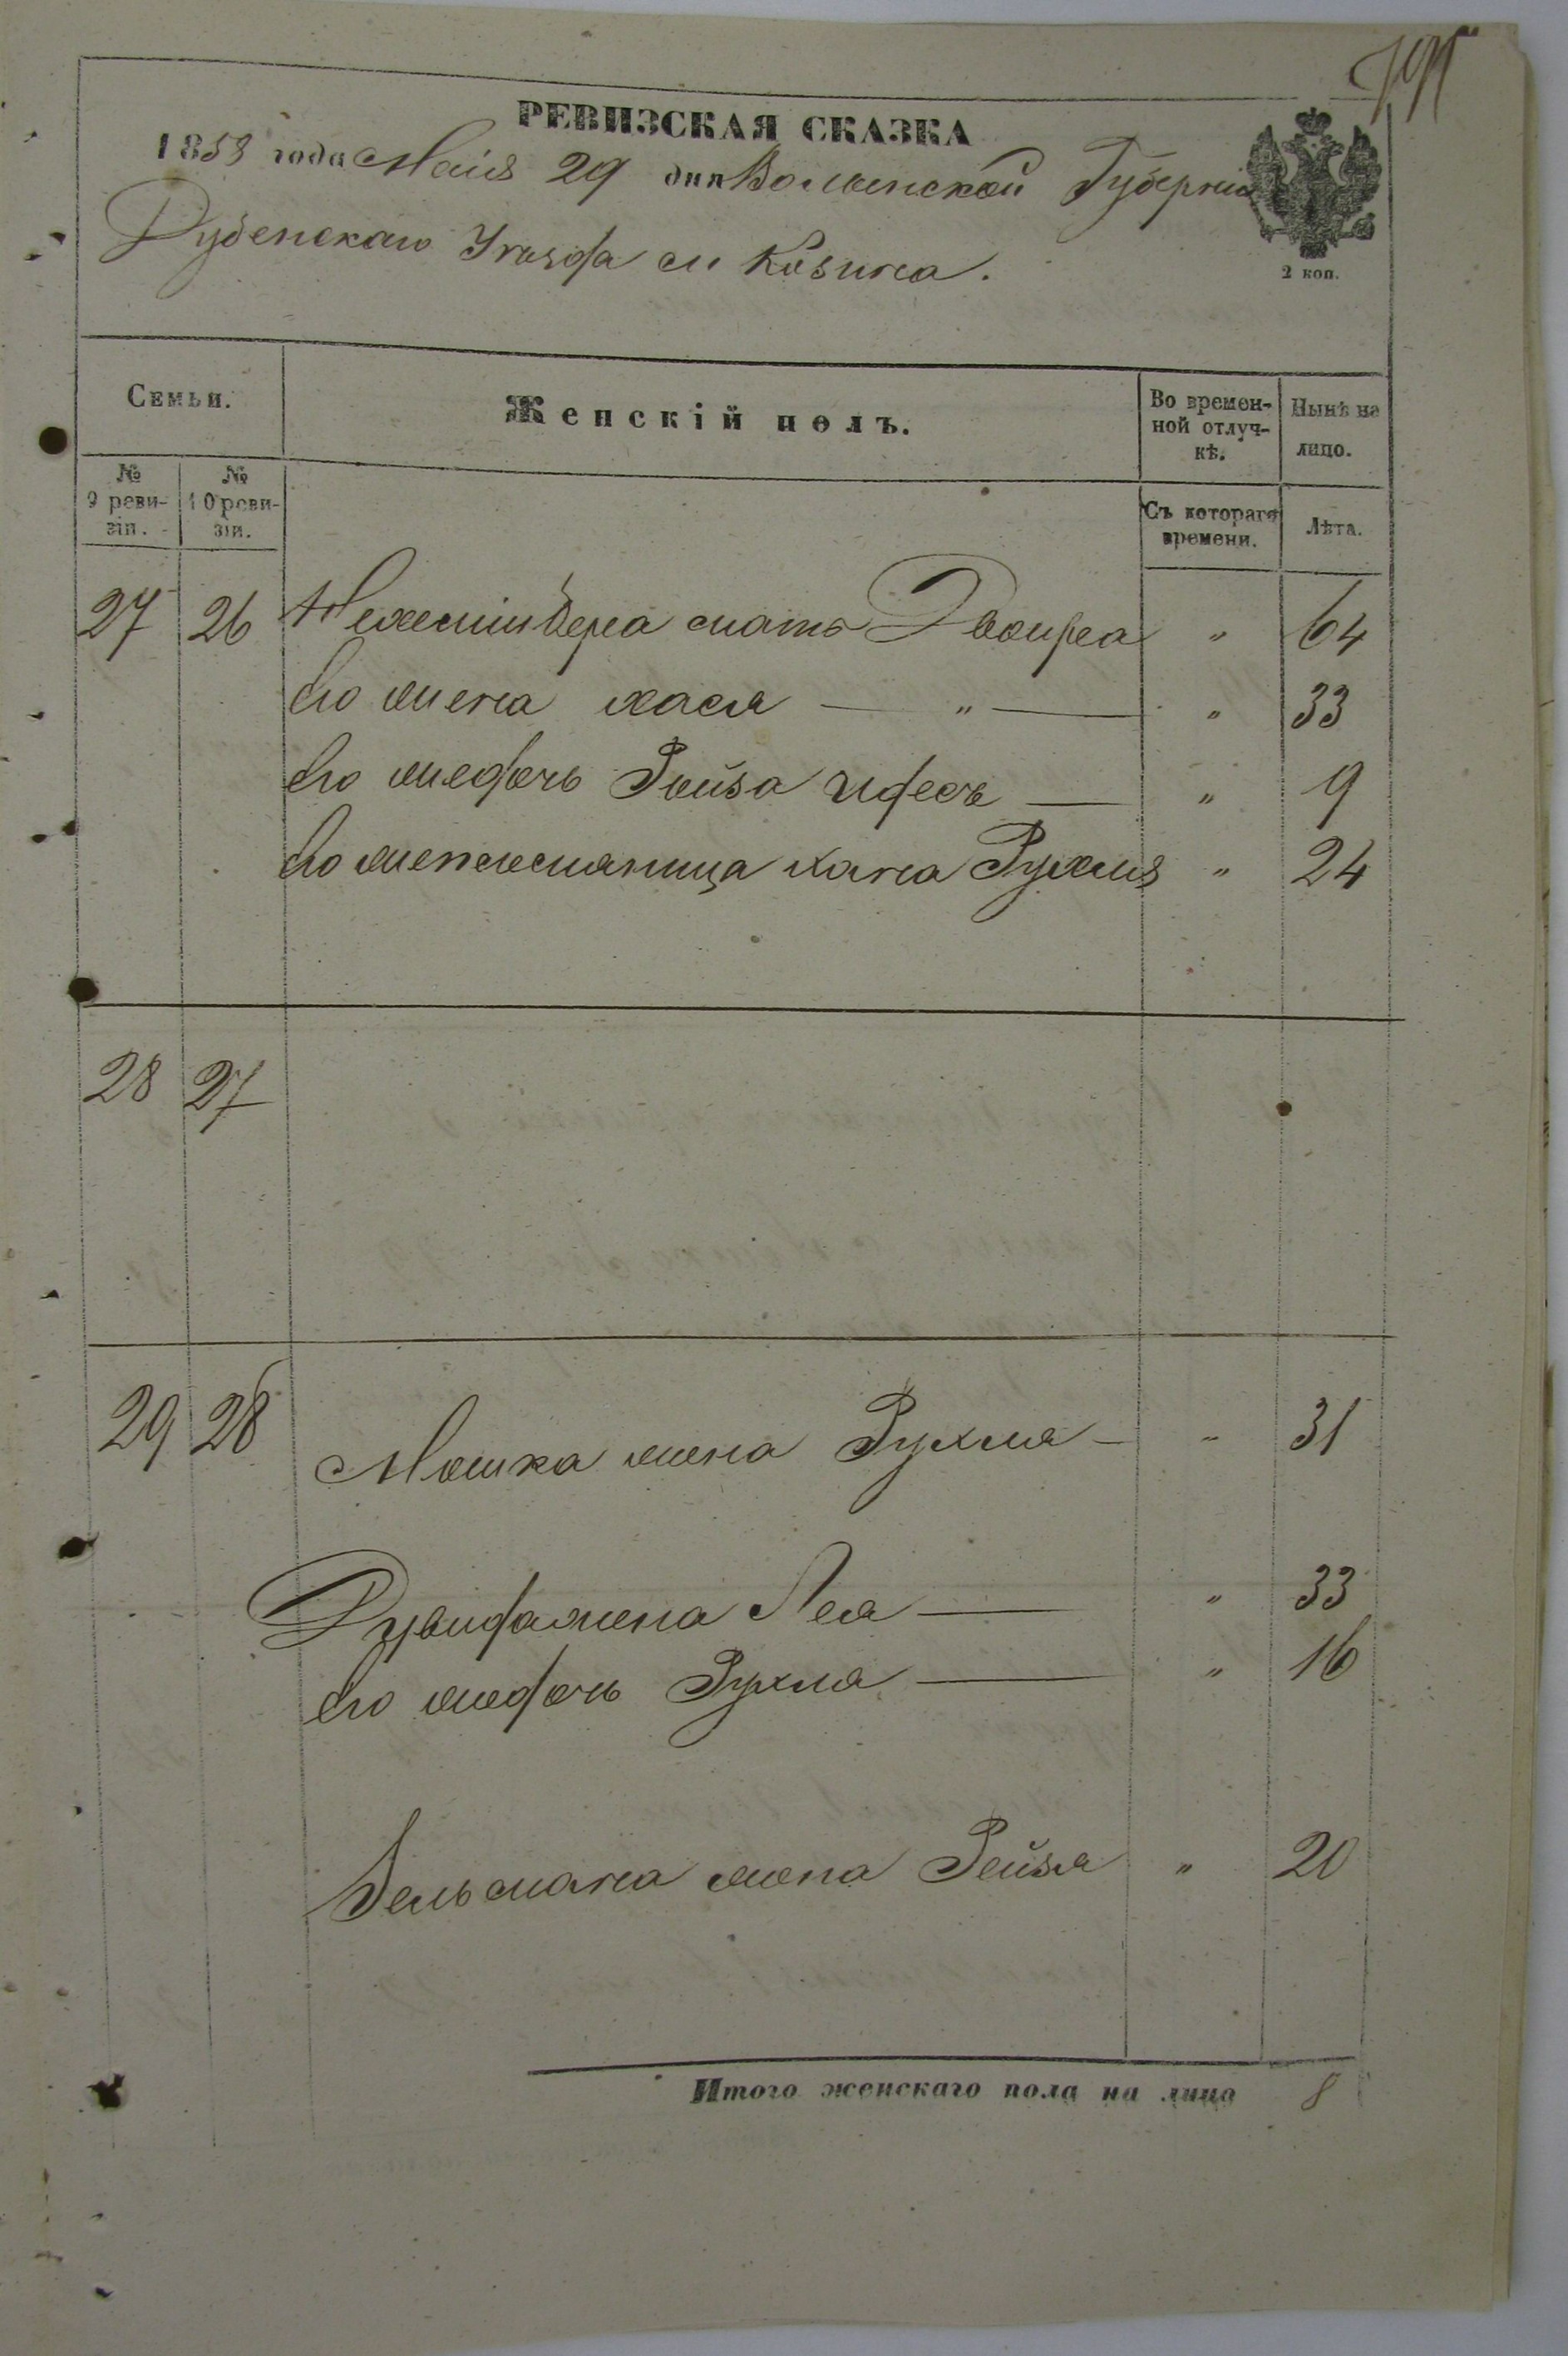 795
РЕВИЗСКАЯ СКАЗКА
1858 года Маія 29 дня Волынской Губерніи
Дубенскаго Уѣзда м Козина.
2 коп.
Семьи.
Женскій полъ.
Во времен-
ной отлуч-
кѣ.
Нынѣ на
лицо.
№
9 реви-
зіи.
№
10 реви-
зіи.
Съ котораго
времени.
Лѣта.
27 26 мать Двойра " 64
Его жена Хася — " — " 33
Его жъ дочь Ройза — " 9
Его жена Хана Рухля " 24
28 27
29 28 Мошка жена Рухля — " 31
Дувида жена Лея — " 33
Его жъ дочь Рухля — " 16
Зельмана жена Рейзя " 20
Итого женскаго пола на лицо 8